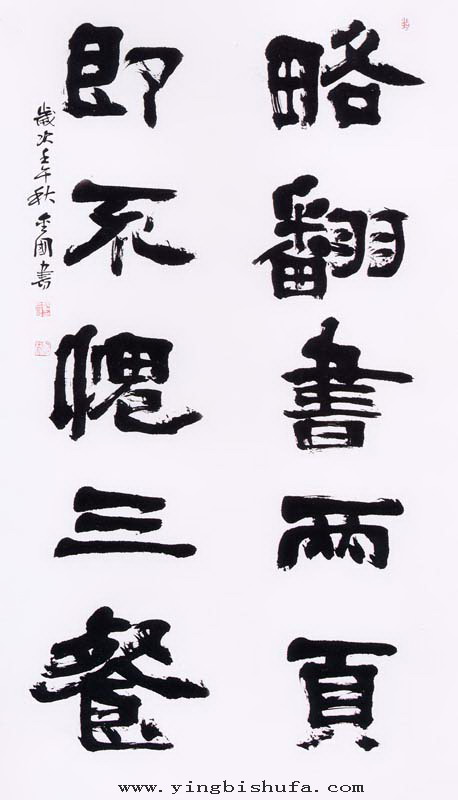 略翻書兩頁
即不愧三餐
歲次壬午秋
國書
www.yingbishufa.com